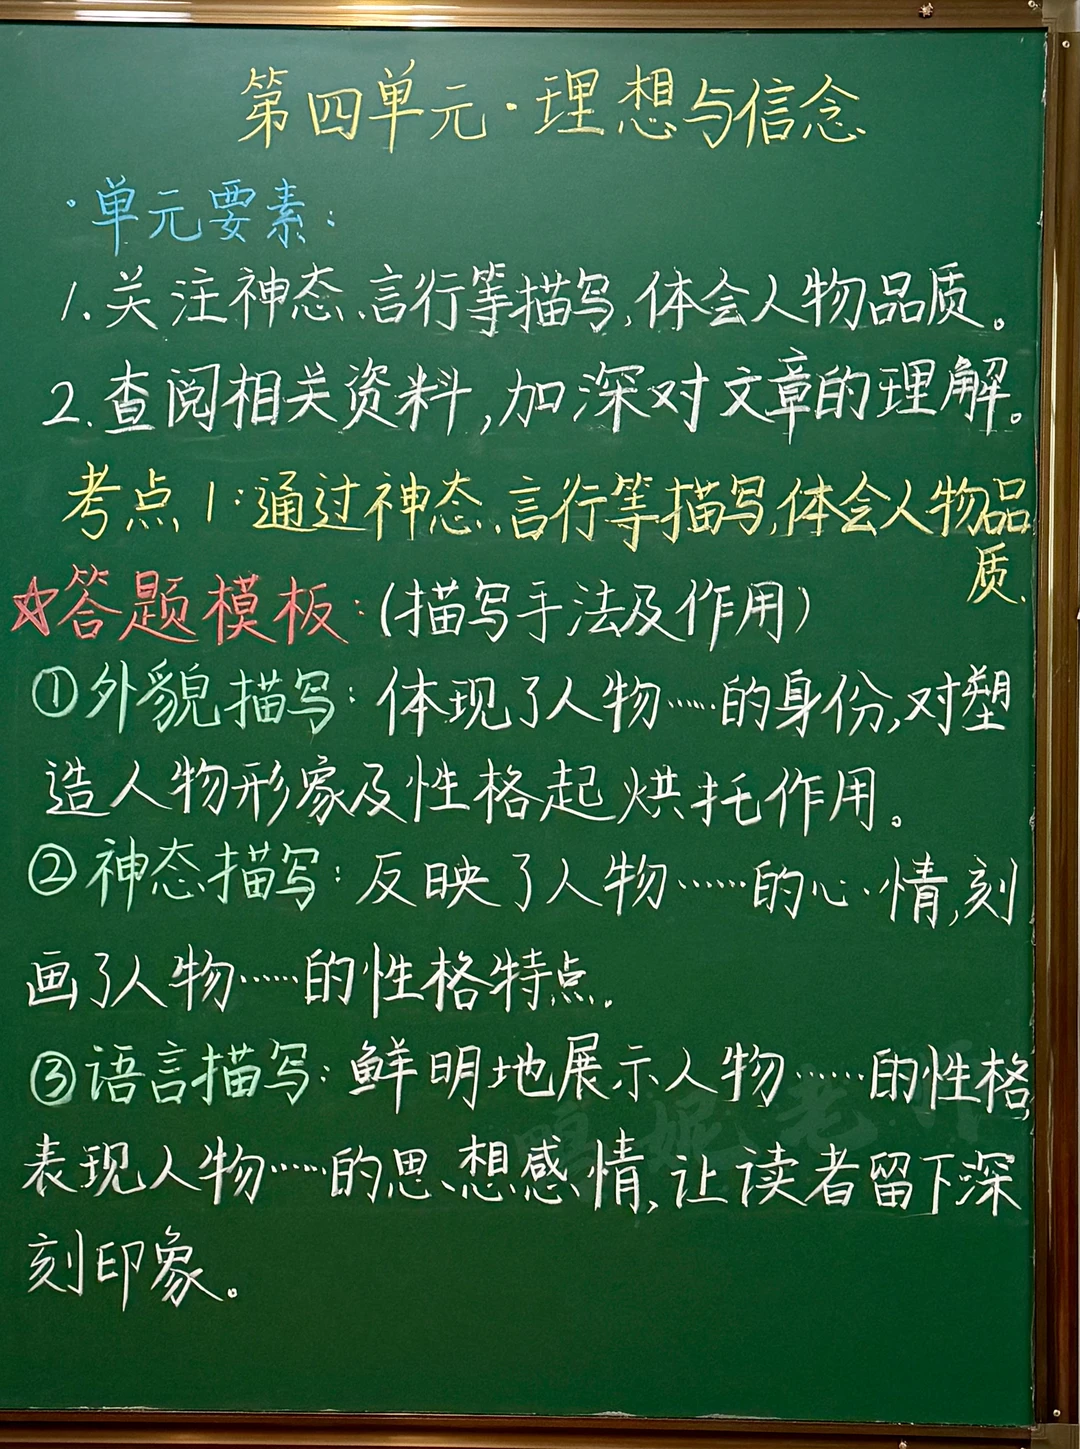 第四单元·理想与信念
·单元要素：
1.关注神态、言行等描写,体会人物品质。
2.查阅相关资料,加深对文章的理解。
考点1:通过神态、言行等描写,体会人物品
质.
☆答题模板:(描写手法及作用)
①外貌描写:体现了人物……的身份,对塑
造人物形象及性格起烘托作用。
②神态描写:反映了人物……的心情,刻
画了人物……的性格特点.
③语言描写:鲜明地展示人物……的性格,
表现人物……的思想感情,让读者留下深
刻印象。